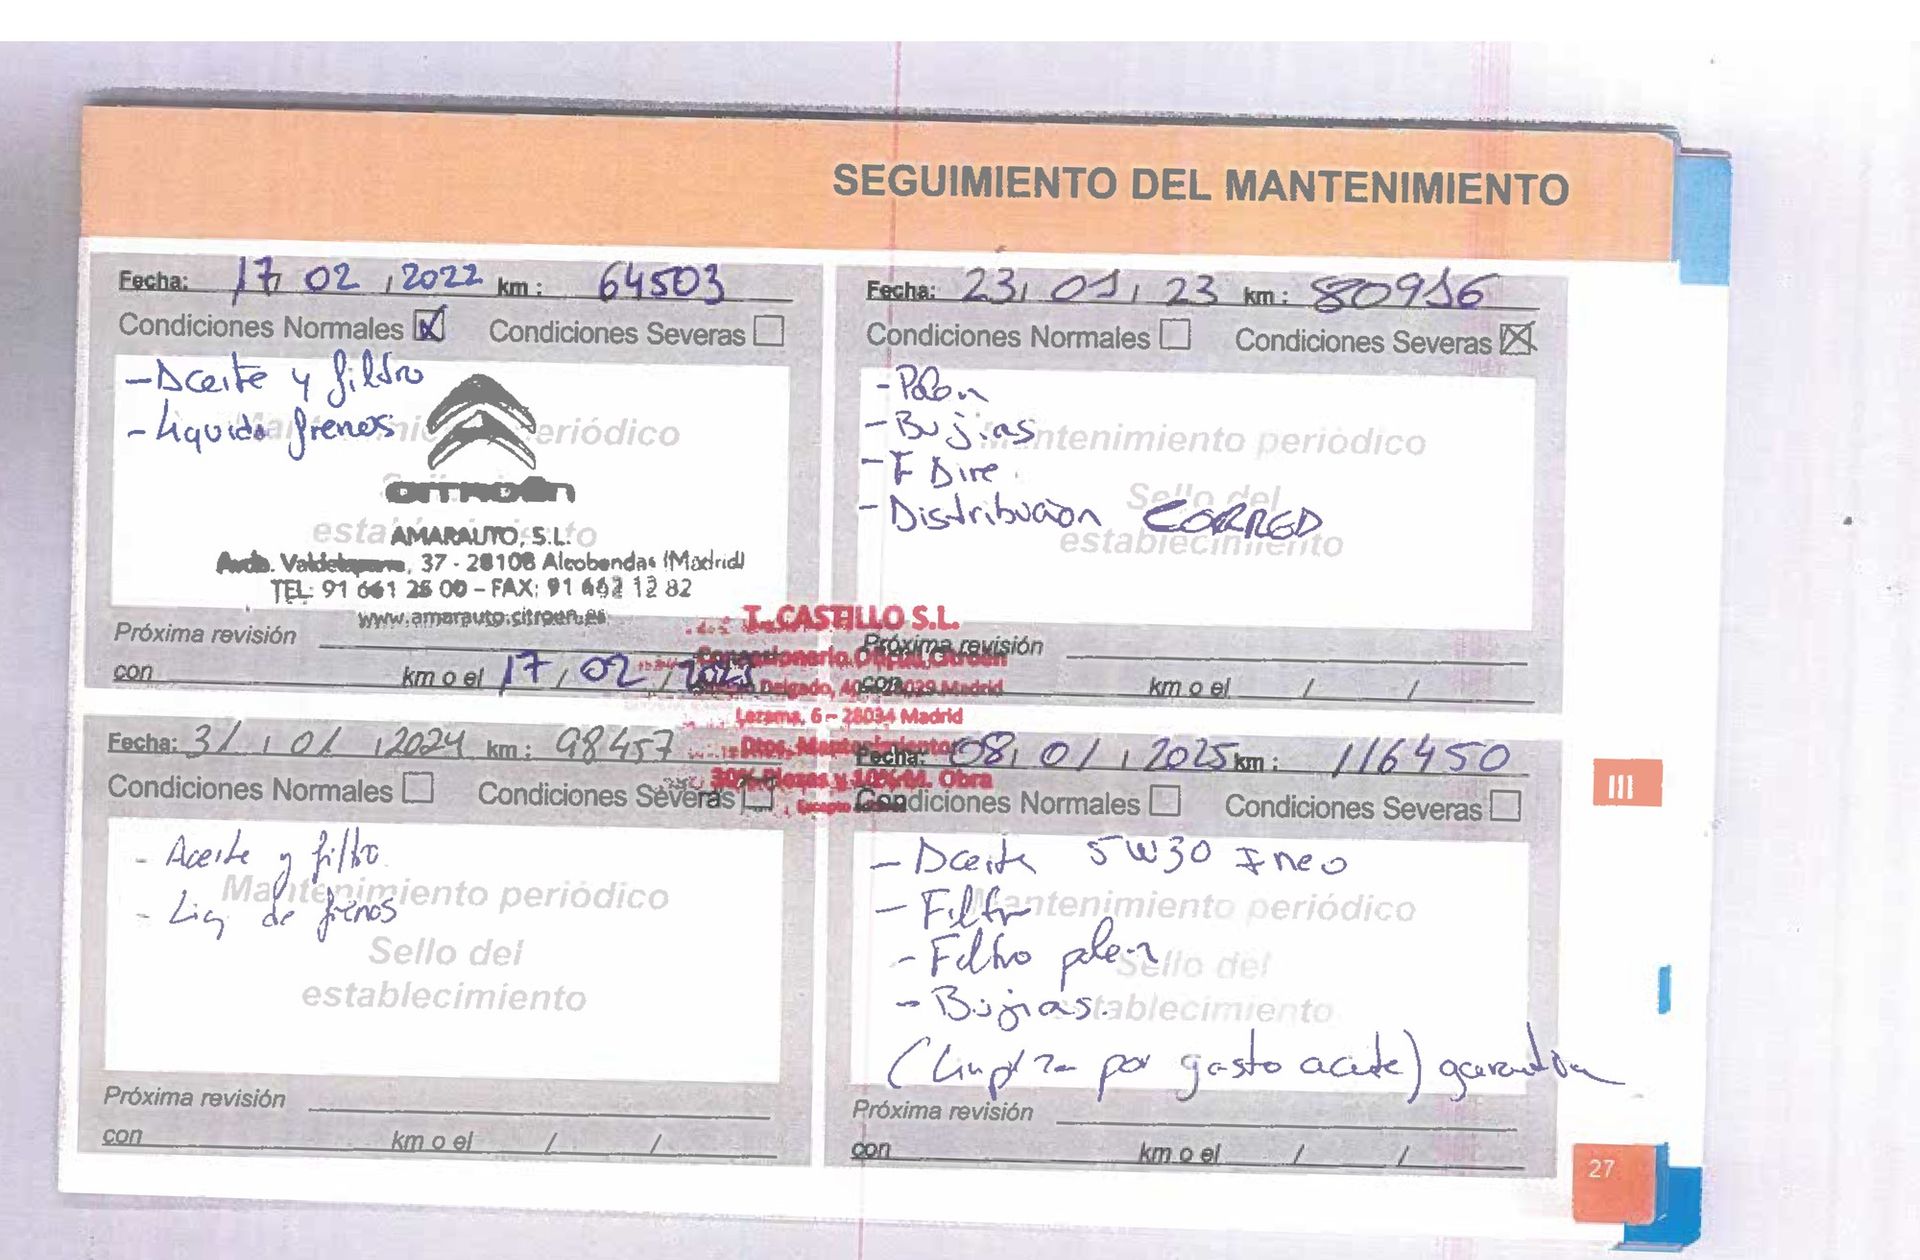 SEGUIMIENTO DEL MANTENIMIENTO
Fecha: 17 / 02 / 2022 km : 64503
Condiciones Normales Condiciones Severas
- Aceite y filtro
- Liquido frenos
Mantenimiento periódico
Sello del
establecimiento
CITROËN
AMARAUTO, S.L.
Avda. 37 - 28108 Alcobendas (Madrid)
TEL: 91 661 25 00 - FAX: 91 662 12 82
www.amarauto.citroen.es
Próxima revisión
con km o el 17 / 02 / 2023
Fecha: 23 / 01 / 23 km : 80916
Condiciones Normales Condiciones Severas
- Polen
- Bujias
- F Dire
- Distribución CORREO
Mantenimiento periódico
Sello del
establecimiento
Próxima revisión
con km o el / /
T. CASTILLO S.L.
Concesionario Oficial Citroën
Delgado, 40 - 28029 Madrid
Lezama, 6 – 28034 Madrid
Dtos. Mantenimiento
30% Piezas y 10% M. Obra
Excepto
Fecha: 31 / 01 / 2024 km : 98457
Condiciones Normales Condiciones Severas
- Aceite y filtro
- Liq de frenos
Mantenimiento periódico
Sello del
establecimiento
Próxima revisión
con km o el / /
Fecha: 08 / 01 / 2025 km : 116450
Condiciones Normales Condiciones Severas
- Aceite 5W30 Ineo
- Filtro
- Filtro polen
- Bujias.
(Limpieza por gasto aceite) garantia
Mantenimiento periódico
Sello del
establecimiento
Próxima revisión
con km o el / /
III
27